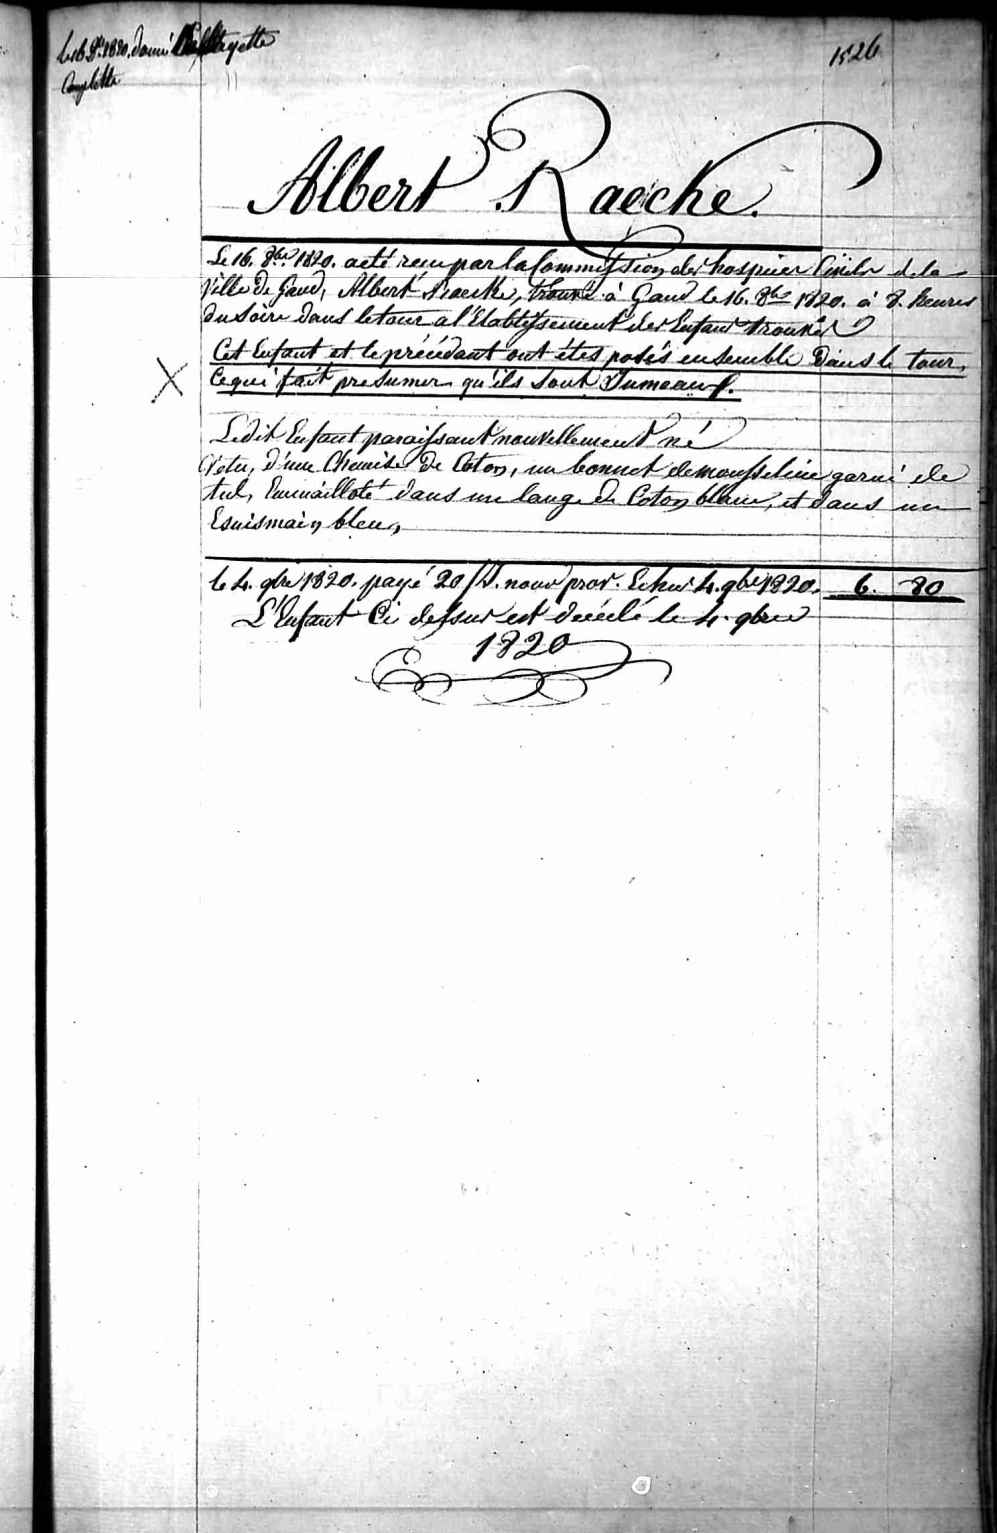 le 16. 8bre 1820. donné layette
Complette
1526
Albert Raecké.
Le 16. 8bre 1820. a eté recu par la Commission des hospices Civils de la
Ville de Gand, Albert Raecke, trouvé à Gand le 16. 8bre 1820. à 8. heures
du Soire dans le tour a l'Etablissement des Enfans trouvés
Cet Enfant et le précédant ont étes posés ensemble dans le tour,
Ce qui fait presumer qu'ils sont Jumeaux.
Ledit Enfant paraissant nouvellement né
Vetu, d'une Chemise de Coton, un bonnet de mousseline garni de
tul, Emmailloté dans un lange de Coton blanc, et dans un
Esuismain bleu,
le 4. 9bre 1820. payé 20 J. nour prov. Echus 4. 9bre 1820. 6. 80
L'Enfant Ci dessus est decédé le 4. 9bre
1820